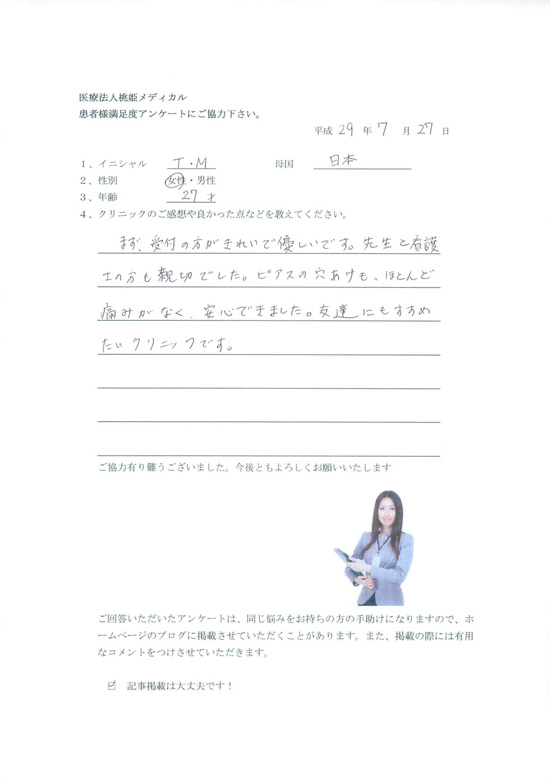 医療法人桃姫メディカル
患者様満足度アンケートにご協力下さい。
平成 29 年 7 月 27 日
1、イニシャル T・M 母国 日本
2、性別 女性・男性
3、年齢 27 才
4、クリニックのご感想や良かった点などを教えてください。
まず、受付の方がきれいで優しいです。先生と看護
士の方も親切でした。ピアスの穴あけも、ほとんど
痛みがなく、安心できました。友達にもすすめ
たいクリニックです。
ご協力有り難うございました。今後ともよろしくお願いいたします
ご回答いただいたアンケートは、同じ悩みをお持ちの方の手助けになりますので、ホ
ームページのブログに掲載させていただくことがあります。また、掲載の際には有用
なコメントをつけさせていただきます。
☑ 記事掲載は大丈夫です！